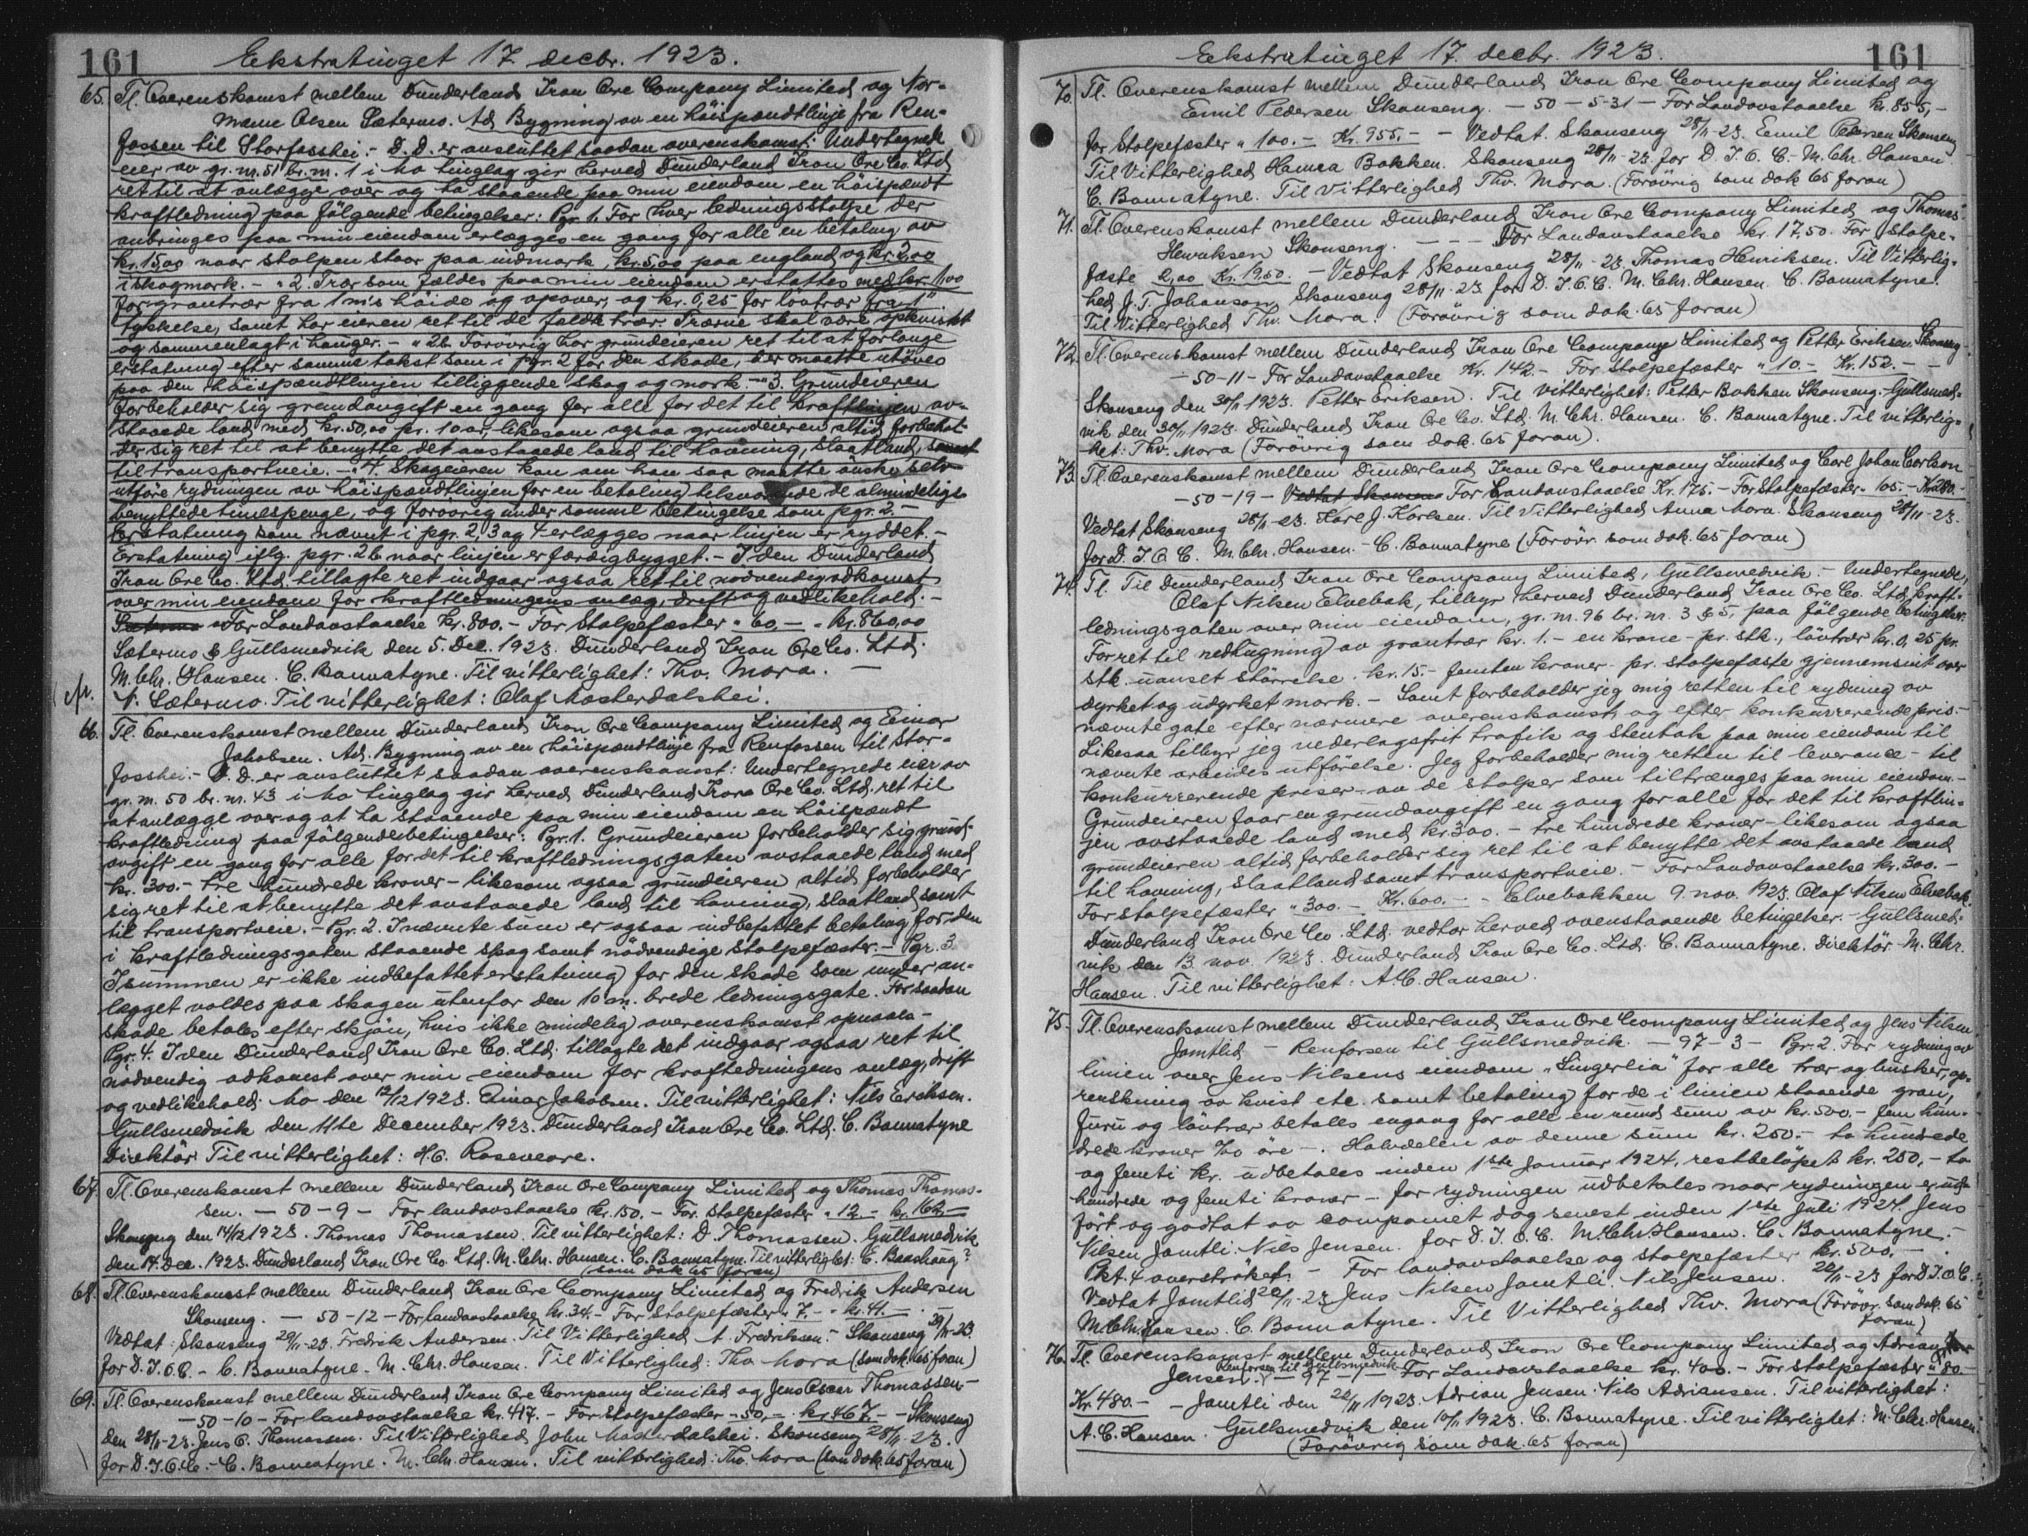 161
Ekstratinget 17 decbr. 1923.
65. Tl. Overenskomst mellem Dunderland Iron Ore Company Limited og Nor-
mann Olsen Sætermo. Ad Bygning av en höispændtlinje fra Ren-
fossen til Storfosshei.- D.D. er avsluttet saadan overenskomst: Undertegnede
eier av gr. nr. 51 br. m. 1 i Mo tinglag gir herved Dunderland Iron Ore Co. Ltd
ret til at anlægge over og ha staaende paa min eiendom en höispændt
kraftledning paa fölgende betingelser: Pgr. 1. For hver ledningsstolpe der
anbringes paa min eiendom erlægges en gang for alle en betaling av
kr. 15,00 naar stolpen staar paa indmark, kr. 5,00 paa england og kr. 2,00
i skogmark. - " 2. Trær som fældes paa min eiendom erstattes med kr. 1,00
for grantrær fra 1 m's höide og opover, og kr. 0,25 for lövtrær fra 1"
tykkelse, samt har eieren ret til de fældte trær. Trærne skal være opkvistet
og sammenlagt i hauger. - " 2b Forövrig har grundeieren ret til at forlange
erstatning efter samme takst som i pgr. 2 for den skade, der maatte utöves
paa den höispændtlinjen tilliggende skog og mark. - " 3. Grundeieren
forbeholder sig grundavgift en gang for alle for det til kraftlinjen av-
staaede land med kr. 50,00 pr. 10 ar, likesom ogsaa grundeieren altid forbehol-
der sig ret til at benytte det avstaaede land til havning, slaatland, samt
til transportveie. - " 4. Skogeieren kan om han saa maatte önske selv
utföre rydningen av höispændtlinjen for en betaling tilsvarende de almindelige
benyttede timespenge, og forövrig under samme betingelse som pgr. 2. -
Erstatning som nævnt i pgr. 2, 3 og 4 erlægges naar linjen er ryddet. -
Erstatning iflg. pgr. 2b naar linjen er færdigbygget. - I den Dunderland
Iron Ore Co. Ltd. tillagte ret indgaar ogsaa ret til nödvendig adkomst
over min eiendom for kraftledningens anlæg, drift og vedlikehold. -
For Landavstaaelse kr. 800. - For Stolpefæster " 60,- - kr. 860,00
Sætermo & Gullsmedvik den 5. Dec. 1923. Dunderland Iron Ore Co. Ltd.
M. Chr. Hansen. C. Bannatyne. Til vitterlighet: Thv. Mora. -
N. Sætermo. Til vitterlighet: Olaf Mosterdalshei.
66. Tl. Overenskomst mellem Dunderland Iron Ore Company Limited og Einar
Jakobsen. Ad. Bygning av en höispændtlinje fra Renfossen til Stor-
fosshei.- D.D. er avsluttet saadan overenskomst: Undertegnede eier av
gr. m. 50 br. nr. 43 i Mo tinglag gir herved Dunderland Iron Ore Co. Ltd. ret til
at anlægge over og at ha staaende paa min eiendom en höispændt
kraftledning paa fölgende betingelser: Pgr. 1. Grundeieren forbeholder sig grund-
avgift en gang for alle for det til kraftledningsgaten avstaaede land med
kr. 300.- tre hundrede kroner - likesom ogsaa grundeieren altid forbeholder
sig ret til at benytte det avstaaede land til havning, slaatland samt
til transportveie. - Pgr. 2. I nævnte sum er ogsaa indbefattet betaling for den
i kraftledningsgaten staaende skog samt nödvendige stolpefæster. - Pgr. 3.
I summen er ikke indbefattet erstatning for den skade som under an-
lægget voldes paa skogen utenfor den 10 m. brede ledningsgate. For saadan
skade betales efter skjön, hvis ikke mindelig overenskomst opnaaes -
Pgr. 4. I den Dunderland Iron Ore Co. Ltd. tillagte ret indgaar ogsaa ret til
nödvendig adkomst over min eiendom for kraftledningens anlæg, drift
og vedlikehold. Mo den 12/12 1923. Einar Jakobsen. Til vitterlighet: Nils Eriksen.
Gullsmedvik den 11te December 1923. Dunderland Iron Ore Co. Ltd. C. Bannatyne
Direktör. Til vitterlighet: H.C. Roseveare.
67. Tl. Overenskomst mellem Dunderland Iron Ore Company Limited og Thomas Thomas-
sen. - 50 - 9 - For landavstaaelse kr. 150. - For Stolpefæster " 12 - kr. 162.-
Skonseng den 14/12 1923. Thomas Thomassen. Til vitterlighet: D. Thomassen. Gullsmedvik
den 14. Dec. 1923. Dunderland Iron Ore Co. Ltd. M. Chr. Hansen. C. Bannatyne. Til vitterlighet: E. Baashaug?
(som dok 65 foran)
68. Tl. Overenskomst mellem Dunderland Iron Ore Company Limited og Fredrik Andersen
Skonseng. - 50 - 12 - For landavstaaelse kr. 34. - For Stolpefæster " 7.- - kr. 41.-
Vedtat: Skonseng 29/11-23. Fredrik Andersen. Til Vitterlighed A. Fredriksen. - Skonseng 29/11-23.
for D.I.O.C. - C. Bannatyne. M. Chr. Hansen. Til Vitterlighed: Thv. Mora (som dok. 65 foran)
69. Tl. Overenskomst mellem Dunderland Iron Ore Company Limited og Jens Oscar Thomassen -
- 50 - 10 - For landavstaaelse kr. 417. - For Stolpefæster " 50,- - kr. 467.- - Skonseng
den 28/11-23. Jens O. Thomassen. Til Vitterlighed John Mosterdalshei. Skonseng 28/11-23.
for D.I.O.C. - C. Bannatyne. M. Chr. Hansen. Til vitterlighed: Thv. Mora (som dok. 65 foran)
161
Ekstratinget 17. decbr. 1923.
70. Tl. Overenskomst mellem Dunderland Iron Ore Company Limited og
Emil Pedersen Skonseng. - 50 - 5 - 31 - For Landavstaaelse kr. 855,-
for Stolpefæster " 100. - Kr. 955. - - Vedtat. Skonseng 28/11-23. Emil Pedersen Skonseng
Til Vitterlighed Hanna Bakken. Skonseng 28/11-23 for D.I.O.C. - M. Chr. Hansen
C. Bannatyne. Til Vitterlighed Thv. Mora. (Forövrig som dok 65 foran)
71. Tl. Overenskomst mellem Dunderland Iron Ore Company Limited og Thomas
Henriksen Skonseng. - - - For Landavstaaelse kr. 17,50. For Stolpe-
fæste 2,00 Kr. 19,50. - Vedtat Skonseng 28/11-23. Thomas Henriksen. Til Vitterlig-
hed J. T. Johanson. Skonseng 28/11-23. for D.I.O.C. M. Chr. Hansen. C. Bannatyne.
Til Vitterlighed Thv. Mora. (Forövrig som dok. 65 foran)
72. Tl. Overenskomst mellem Dunderland Iron Ore Company Limited og Petter Eriksen Skonseng
- 50 - 11 - For Landavstaaelse Kr. 142 - For Stolpefæster " 10. - Kr. 152. -
Skonseng den 30/11 1923. Petter Eriksen. Til vitterlighet: Petter Bakken Skonseng. Gullsmed-
vik den 30/11 1923. Dunderland Iron Ore Co. Ltd. M. Chr. Hansen. C. Bannatyne. Til vitterlig-
het: Thv. Mora (Forövrig som dok. 65 foran).
73. Tl. Overenskomst mellem Dunderland Iron Ore Company Limited og Carl Johan Carlson
- 50 - 19 - Vedtat Skonsen For Landavstaaelse Kr. 175. - For Stolpefæster " 105. - Kr. 280. -
Vedtat Skonseng 28/11-23. Karl J. Karlsen. Til Vitterlighed Anna Mora. Skonseng 28/11-23.
for D.I.O.C. M. Chr. Hansen. - C. Bannatyne (Forövr. som dok. 65 foran)
74. Tl. Til Dunderland Iron Ore Company Limited, Gullsmedvik - Undertegnede,
Olaf Nilsen Elvebak, tilbyr herved Dunderland Iron Ore Co. Ltd. kraft-
ledningsgaten over min eiendom, gr. nr. 96 br. nr. 3 & 5, paa fölgende betingelser.
For ret til nedhugning av grantrær kr. 1. - en krone - pr. stk., lövtrær kr. 0,25 pr.
stk. uanset störrelse. kr. 15.- femten kroner - pr. stolpefæste gjennemsnit over
dyrket og udyrket mark. - Samt forbeholder jeg mig retten til rydning av
nævnte gate efter nærmere overenskomst og efter konkurrerende pris -
Likesaa tilbyr jeg vederlagsfrit trafik og stentak paa min eiendom til
nævnte arbeides utförelse. Jeg forbeholder mig retten til leveranse - til
konkurrerende priser - av de stolper som tiltrænges paa min eiendom. -
Grundeieren faar en grundavgift en gang for alle for det til kraftlin-
jen avstaaede land med kr. 300. - tre hundrede kroner - likesom ogsaa
grundeieren altid forbeholder sig ret til at benytte det avstaaede land
til havning, slaatland samt transportveie. - For Landavstaaelse kr. 300. -
For stolpefæster " 300. - Kr. 600. - - Elvebakken 9. nov. 1923. Olaf Nilsen Elvebak.
Dunderland Iron Ore Co. Ltd. vedtar herved ovenstaaende betingelser. - Gullsmed-
vik den 13. nov. 1923. Dunderland Iron Ore Co. Ltd. C. Bannatyne. Direktör. M. Chr.
Hansen. Til vitterlighet: A.C. Hansen.
75. Tl. Overenskomst mellem Dunderland Iron Ore Company Limited og Jens Nilsen
Jamtlid - Renforsen til Gullsmedvik. - 97 - 3 - Pgr. 2. For rydning av
linien over Jens Nilsens eiendom "Lingerlia" for alle trær og busker, op-
renskning av kvist etc. samt betaling for de i linien staaende gran,
furu og lövtrær betales engang for alle en rund sum av kr. 500,- fem hun-
drede kroner 00 öre -. Halvdelen av denne sum kr. 250.- to hundrede
og femti kr. udbetales inden 1ste Januar 1924, restbelöpet kr. 250,- to
hundrede og femti kroner - for rydningen udbetales naar rydningen er ud-
fört og godtat av companiet dog senest inden 1ste Juli 1924. Jens
Nilsen Jamtli. Nils Jensen. for D.I.O.C. M. Chr. Hansen. C. Bannatyne. -
Pkt. 4 overströket. - For landavstaaelse og stolpefæster kr. 500. -
Vedtat Jamtlid 22/11-23 Jens Nilsen Jamtli Nils Jensen. 22/11-23 for D.I.O.C.
M. Chr. Hansen. C. Bannatyne. Til Vitterlighed Thv. Mora (Forövr. som dok. 65
foran)
76. Tl. Overenskomst mellem Dunderland Iron Ore Company Limited og Adrian
Renforsen til Gullsmedvik
Jensen. - 97 - 1 - For Landavstaaelse kr. 400. - For Stolpefæster " 80. -
Kr. 480. - - Jamtli den 22/11 1923. Adrian Jensen. Nils Adriansen. Til vitterlighet:
A.C. Hansen. Gullsmedvik den 10/11 1923. C. Bannatyne. Til vitterlighet: M. Chr. Hansen.
(Forövrig som dok. 65 foran)